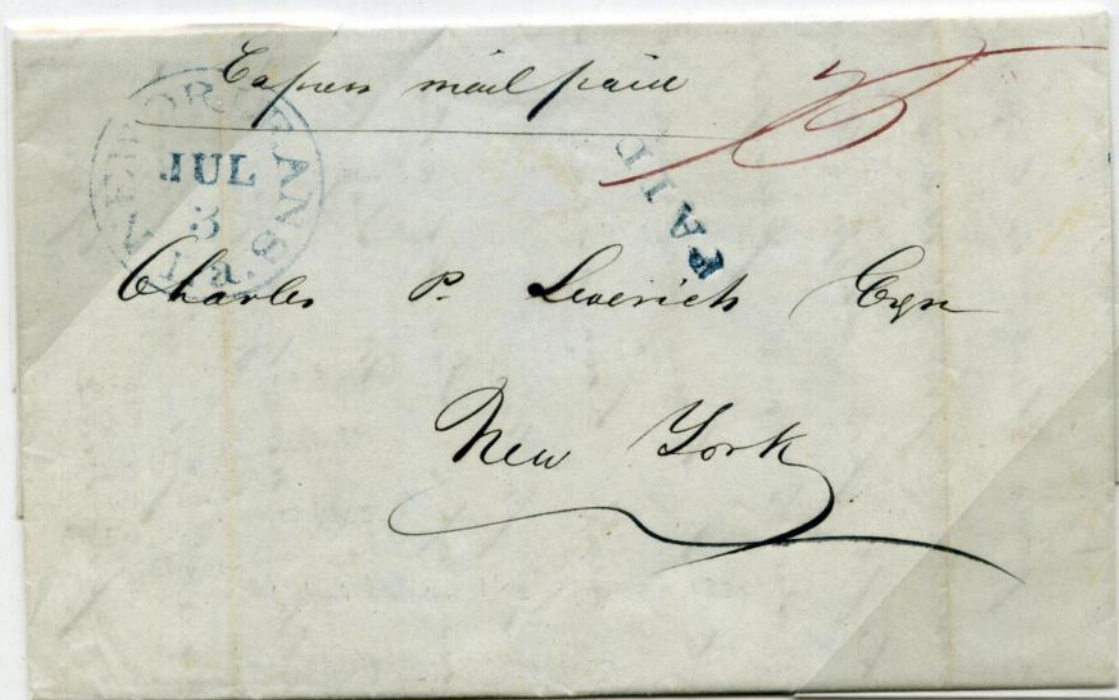 Express mail paid
NEW ORLEANS
JUL
3
La.
PAID
Charles P. Leverich Esqr
New York